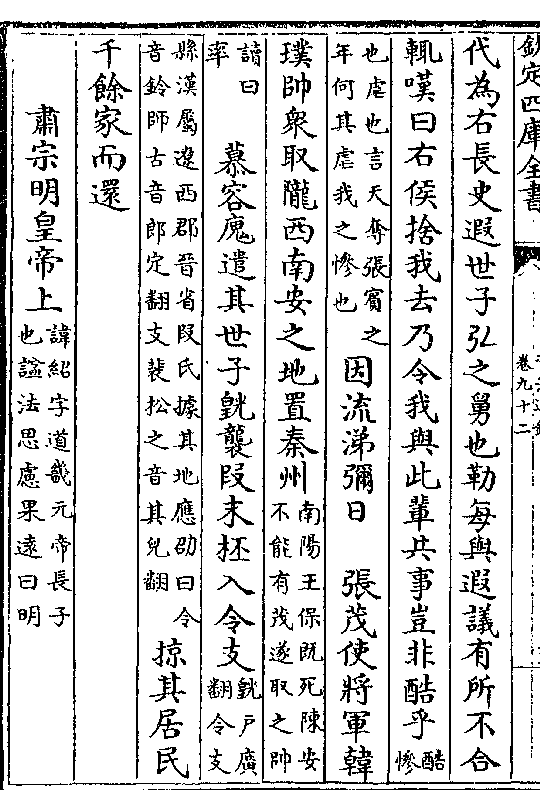 欽定四庫全書
卷九十二
代為右長史遐世子弘之舅也勒每與遐議有所不合
輒嘆曰右侯捨我去乃令我與此輩共事豈非酷乎酷慘
也虐也言天奪張賔之年何其虐我之慘也因流涕彌日　張茂使將軍韓
璞帥衆取隴西南安之地置秦州南陽王保既死陳安不能有茂遂取之帥
讀曰率　慕容廆遣其世子皝襲段末柸入令支皝戸廣翻令支
縣漢屬遼西郡晉省段氏據其地應劭曰令音鈴師古音郎定翻支裴松之音其兒翻掠其居民
千餘家而還
肅宗明皇帝上諱紹字道畿元帝長子也諡法思慮果遠曰明